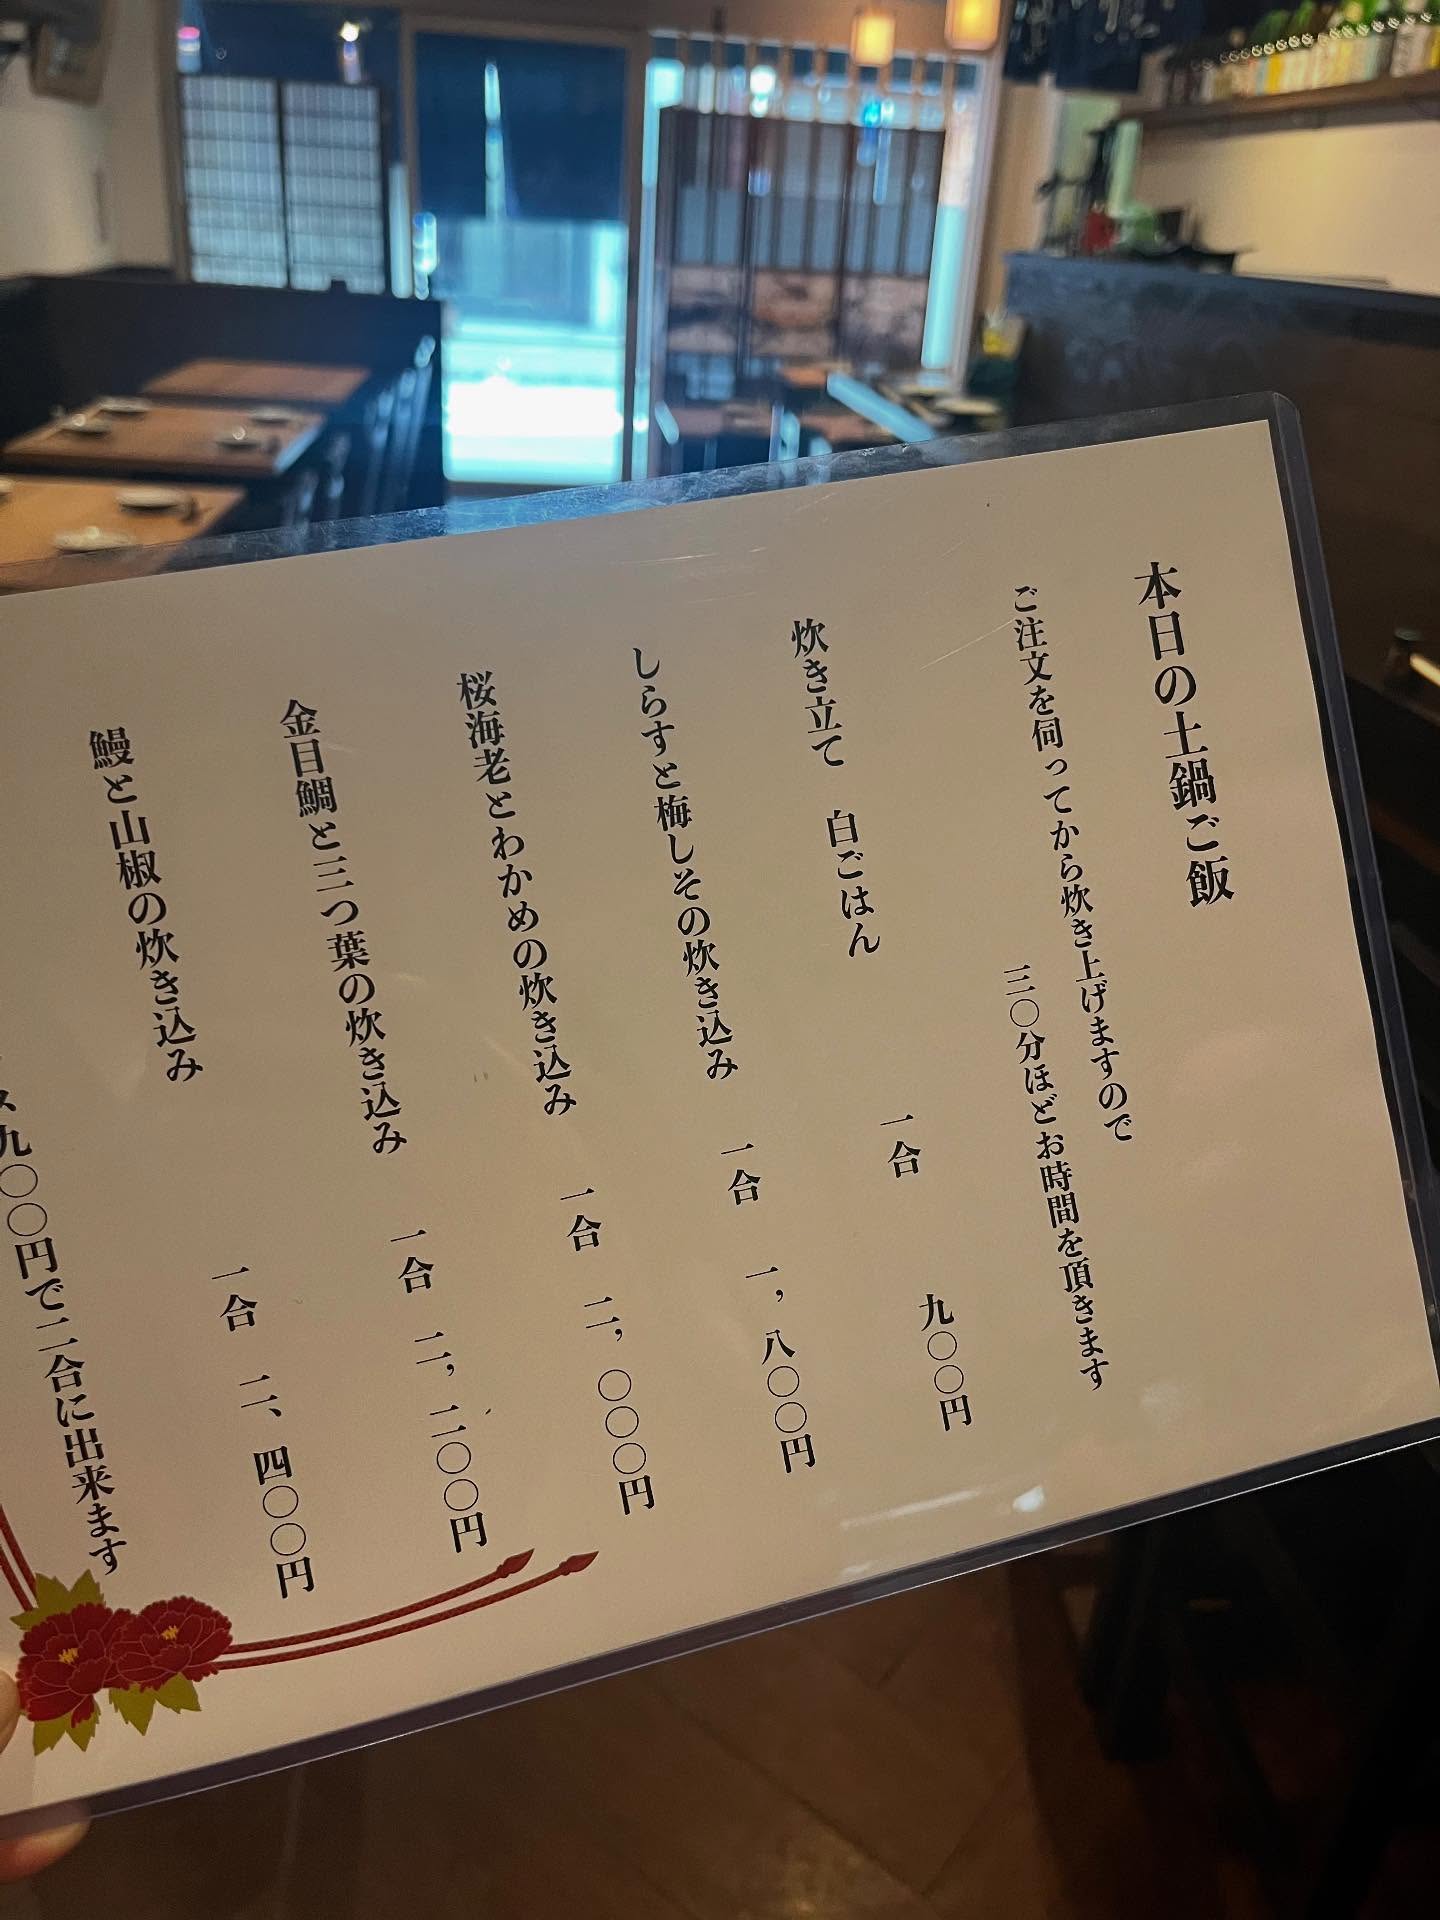 本日の土鍋ご飯
ご注文を伺ってから炊き上げますので
三〇分ほどお時間を頂きます
炊き立て 白ごはん 一合 九〇〇円
しらすと梅しその炊き込み 一合 一，八〇〇円
桜海老とわかめの炊き込み 一合 二，〇〇〇円
金目鯛と三つ葉の炊き込み 一合 二，二〇〇円
鰻と山椒の炊き込み 一合 二、四〇〇円
九〇〇円で二合に出来ます